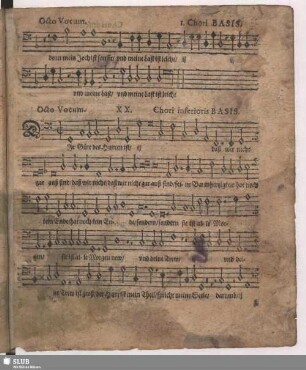 Octo Vocum. 1. Chori BASIS.
denn mein Joch ist sanfft/ und meine Last ist leicht/ ij
und meine Last/ und meine Last ist leicht.
Octo Vocum. XX. Chori inferioris BASIS.
Die Güte des Herren ist/ ij daß wir nicht
gar aus sind/ daß wir nicht/ daß wir nicht gar aus sind/ seine Barmhertzigkeit hat noch
kein Ende/ hat noch kein Ende/ sondern/ sondern sie ist alle Morgen
sie ist alle Morgen new/ und deine Trewe/ und dei-
ne Trew ist groß/ der Herr ist mein Theil/ spricht meine Seele/ darumb/ ij
SLUB
Wir führen Wissen.